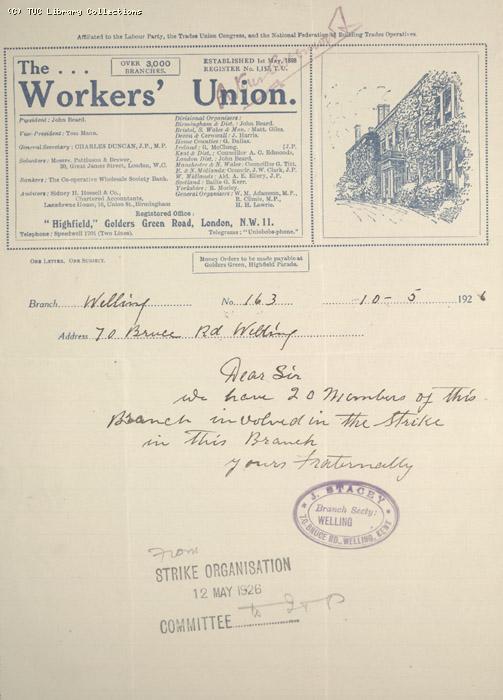 (C) TUC Library Collections
Affiliated to the Labour Party, the Trades Union Congress, and the National Federation of Building Trades Operatives.
The . . .
OVER 3,000 BRANCHES.
ESTABLISHED 1st May, 1898
REGISTER No. 1,153, T.U.
Workers' Union.
President: John Beard.
Vice-President: Tom Mann.
General Secretary: CHARLES DUNCAN, J.P., M.P.
Solicitors: Messrs. Pattinson & Brewer,
30, Great James Street, London, W.C.
Bankers: The Co-operative Wholesale Society Bank.
Auditors: Sidney H. Hassell & Co.,
Chartered Accountants,
Lansdowne House, 16, Union St., Birmingham
Divisional Organisers:
Birmingham & Dist.: John Beard.
Bristol, S. Wales & Mon.: Matt. Giles.
Devon & Cornwall: J. Harris.
Home Counties: G. Dallas.
Ireland: G. McClung. [J.P.
Kent & Dist.: Councillor A. C. Edmonds,
London Dist.: John Beard.
Manchester & N. Wales: Councillor G. Titt.
E. & N. Midlands: Councr. J. W. Clark, J.P.
W. Midlands: Ald. A. E. Ellery, J.P.
Scotland: Bailie G. Kerr.
Yorkshire: R. Morley.
General Organisers: W. M. Adamson, M.P.
R. Climie, M.P.
H. H. Lawrie.
Registered Office:
"Highfield," Golders Green Road, London, N.W. 11.
Telephone: Speedwell 1701 (Two Lines).
Telegrams: "Uniobobe-phone."
ONE LETTER, ONE SUBJECT.
Money Orders to be made payable at
Golders Green, Highfield Parade.
Branch Welling No. 163 10-5 1926
Address 70 Bruce Rd Welling
Dear Sir
we have 20 Members of this
Branch involved in the Strike
in this Branch
yours fraternally
J. STACEY
Branch Secty:
WELLING
70 BRUCE RD., WELLING, KENT
From
STRIKE ORGANISATION
12 MAY 1926
COMMITTEE to